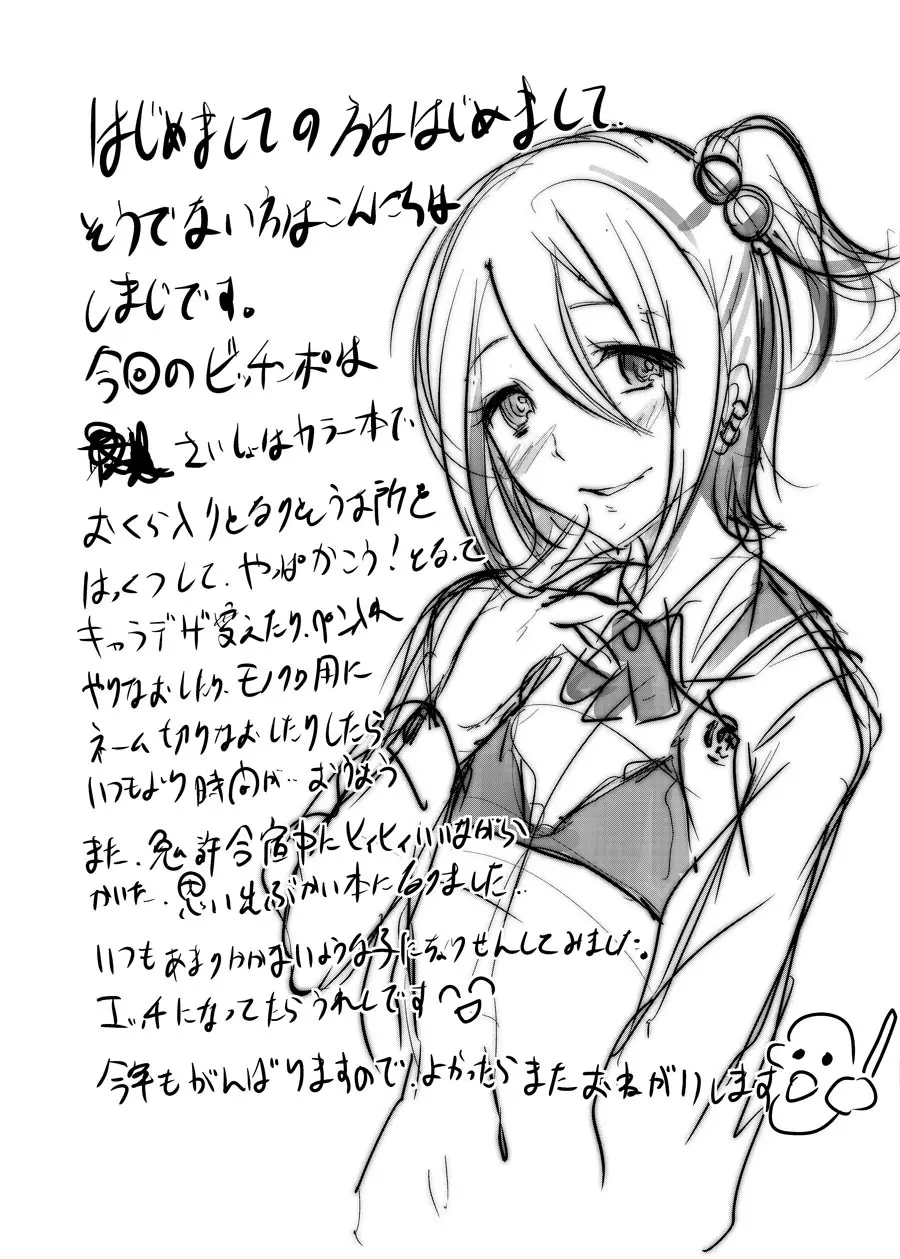 はじめましての方ははじめまして
そうでない方はこんにちは
しまじです。
今回のビッチンポは
さいしょはカラー本で
おくら入りとなりそうな所を
はっくつして、やっぱかこう!となって
キャラデザ変えたり、ペン入れ
やりなおしたり、モノクロ用に
ネーム切りなおしたりしたら
いつもより時間が…おりょう
また、免許合宿中にヒィヒィいいながら
かいた、思い出ぶかい本になりました…
いつもあまりかかないような子にちょうせんしてみました。
エッチになってたらうれしいです
今年もがんばりますので、よかったらまたおねがいします